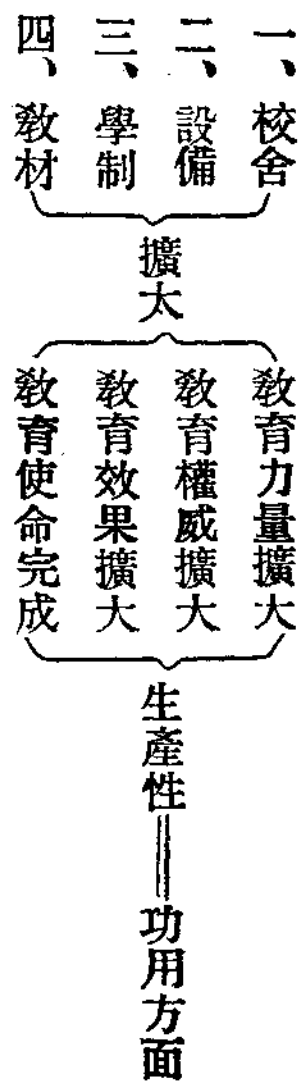 一、校舍
二、設備
三、學制
四、敎材
擴大
敎育力量擴大
敎育權威擴大
敎育效果擴大
敎育使命完成
生產性══功用方面